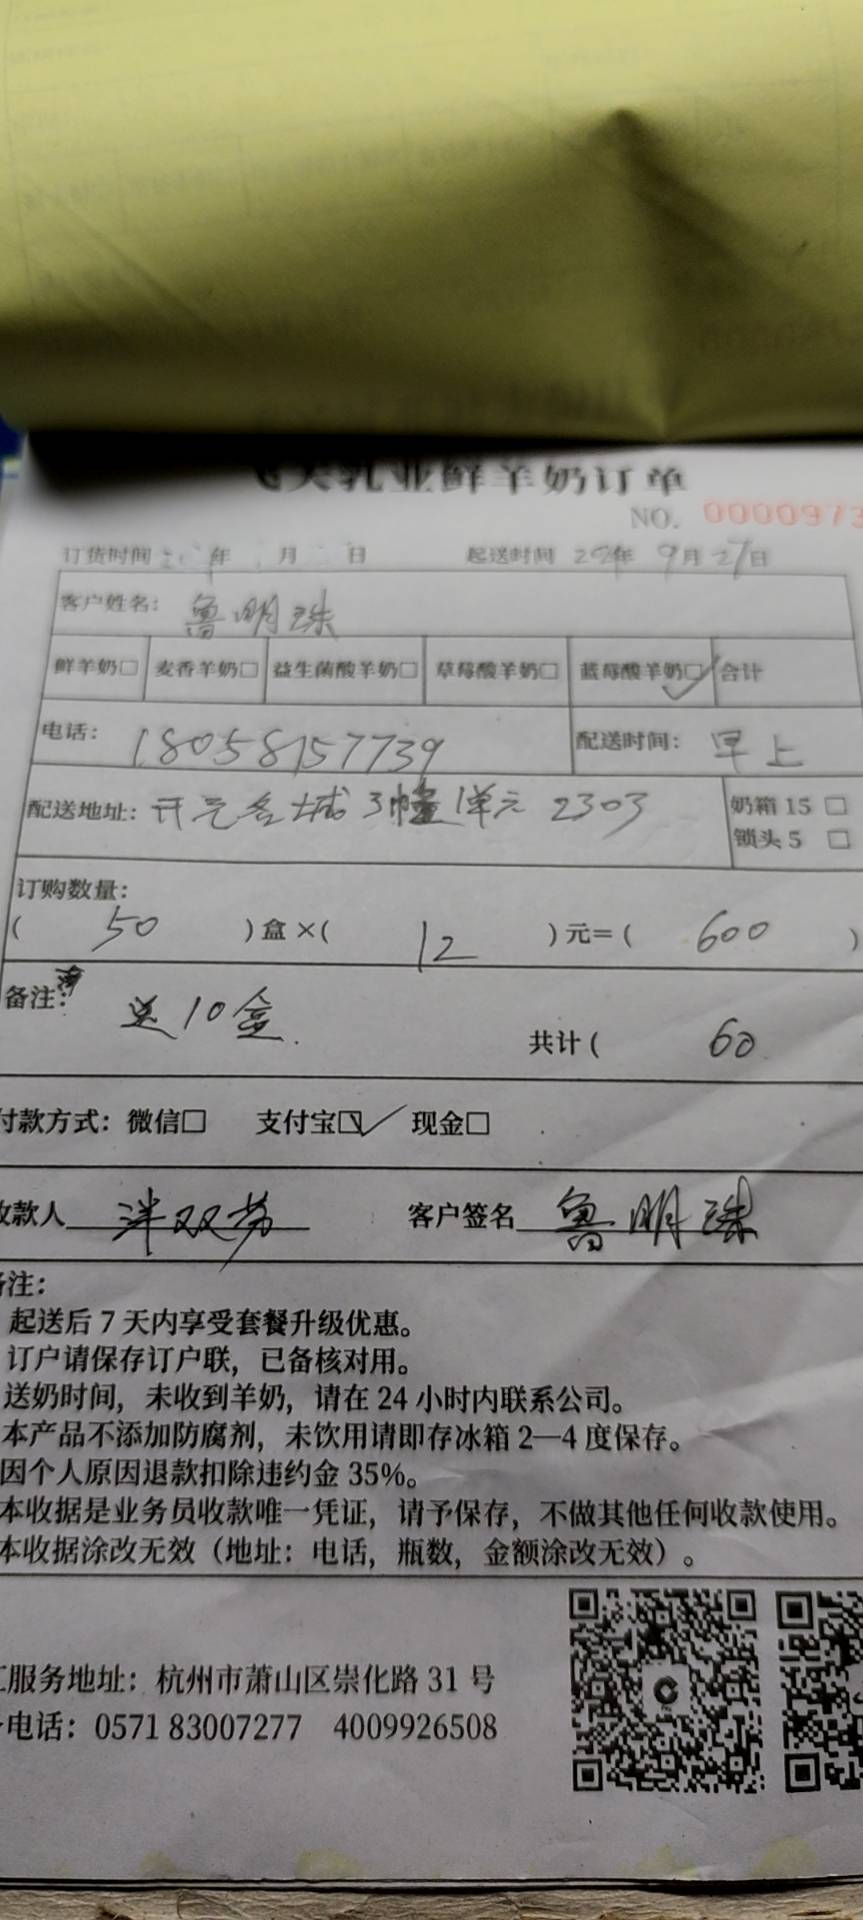 天乳业鲜羊奶订单
NO. 0000973
订货时间 年 月 日 起送时间 年 9月27日
客户姓名: 鲁明珠
鲜羊奶□ 麦香羊奶□ 益生菌酸羊奶□ 草莓酸羊奶□ 蓝莓酸羊奶□✓ 合计
电话: 18058157739 配送时间: 早上
配送地址: 开元名城3幢1单元 2303 奶箱 15 □
锁头 5 □
订购数量:
( 50 )盒×( 12 )元=( 600 )
备注: 送10盒. 共计( 60
付款方式: 微信□ 支付宝☑ 现金□
收款人 客户签名 鲁明珠
备注:
起送后 7 天内享受套餐升级优惠。
订户请保存订户联，已备核对用。
送奶时间，未收到羊奶，请在 24 小时内联系公司。
本产品不添加防腐剂，未饮用请即存冰箱 2—4 度保存。
因个人原因退款扣除违约金 35%。
本收据是业务员收款唯一凭证，请予保存，不做其他任何收款使用。
本收据涂改无效（地址：电话，瓶数，金额涂改无效）。
服务地址：杭州市萧山区崇化路 31 号
电话：0571 83007277 4009926508